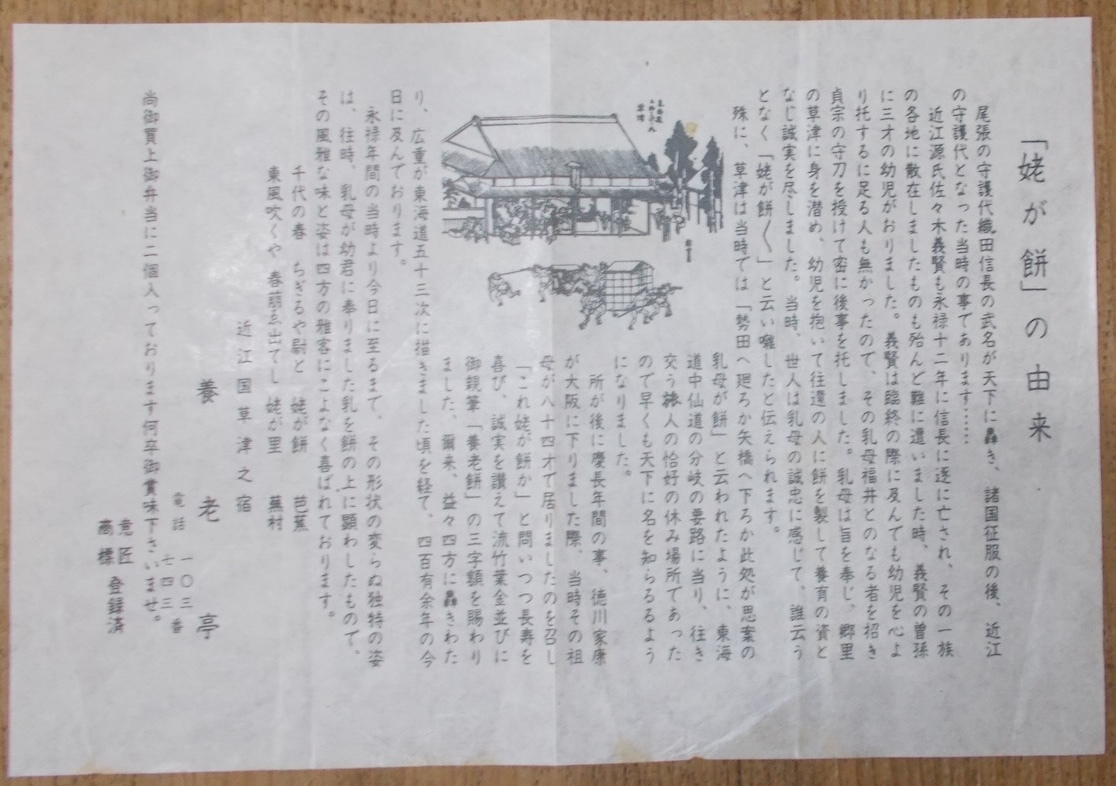 「姥が餅」の由来
尾張の守護代織田信長の武名が天下に轟き、諸国征服の後、近江
の守護代となった当時の事であります……
近江源氏佐々木義賢も永禄十二年に信長に遂に亡され、その一族
の各地に散在しましたものも殆んど難に遭いました時、義賢の曽孫
に三才の幼児がおりました。義賢は臨終の際に及んでも幼児を心よ
り托するに足る人も無かったので、その乳母福井とのなる者を招き
貞宗の守刀を授けて密に後事を托しました。乳母は旨を奉じ、郷里
の草津に身を潜め、幼児を抱いて往還の人に餅を製して養育の資と
なし誠実を尽しました。当時、世人は乳母の誠忠に感じて、誰云う
となく「姥が餅〱」と云い囃したと伝えられます。
殊に、草津は当時では「勢田へ廻ろか矢橋へ下ろか此処が思案の
乳母が餅」と云われたように、東海
道中仙道の分岐の要路に当り、往き
交う旅人の恰好の休み場所であった
ので早くも天下に名を知らるるよう
になりました。
所が後に慶長年間の事、徳川家康
が大阪に下りました際、当時その祖
母が八十四才で居りましたのを召し
「これ姥が餅か」と問いつつ長寿を
喜び、誠実を讃えて流竹葉金並びに
御鏡筆「養老餅」の三字額を賜わり
ました。爾来、益々四方に轟きわた
り、広重が東海道五十三次に描きました頃を経て、四百有余年の今
日に及んでおります。
永禄年間の当時より今日に至るまで、その形状の変らぬ独特の姿
は、往時、乳母が幼君に奉りました乳を餅の上に顕わしたもので、
その風雅な味と姿は四方の雅客にこよなく喜ばれております。
千代の春 ちぎるや尉と 姥が餅 芭蕉
東風吹くや 春萠ゑ出てし 姥が里 蕪村
近江国草津之宿
養老亭
電話 一〇三
七四三 番
尚御買上御弁当に二個入っております何卒御賞味下さいませ。
意匠
商標 登録済